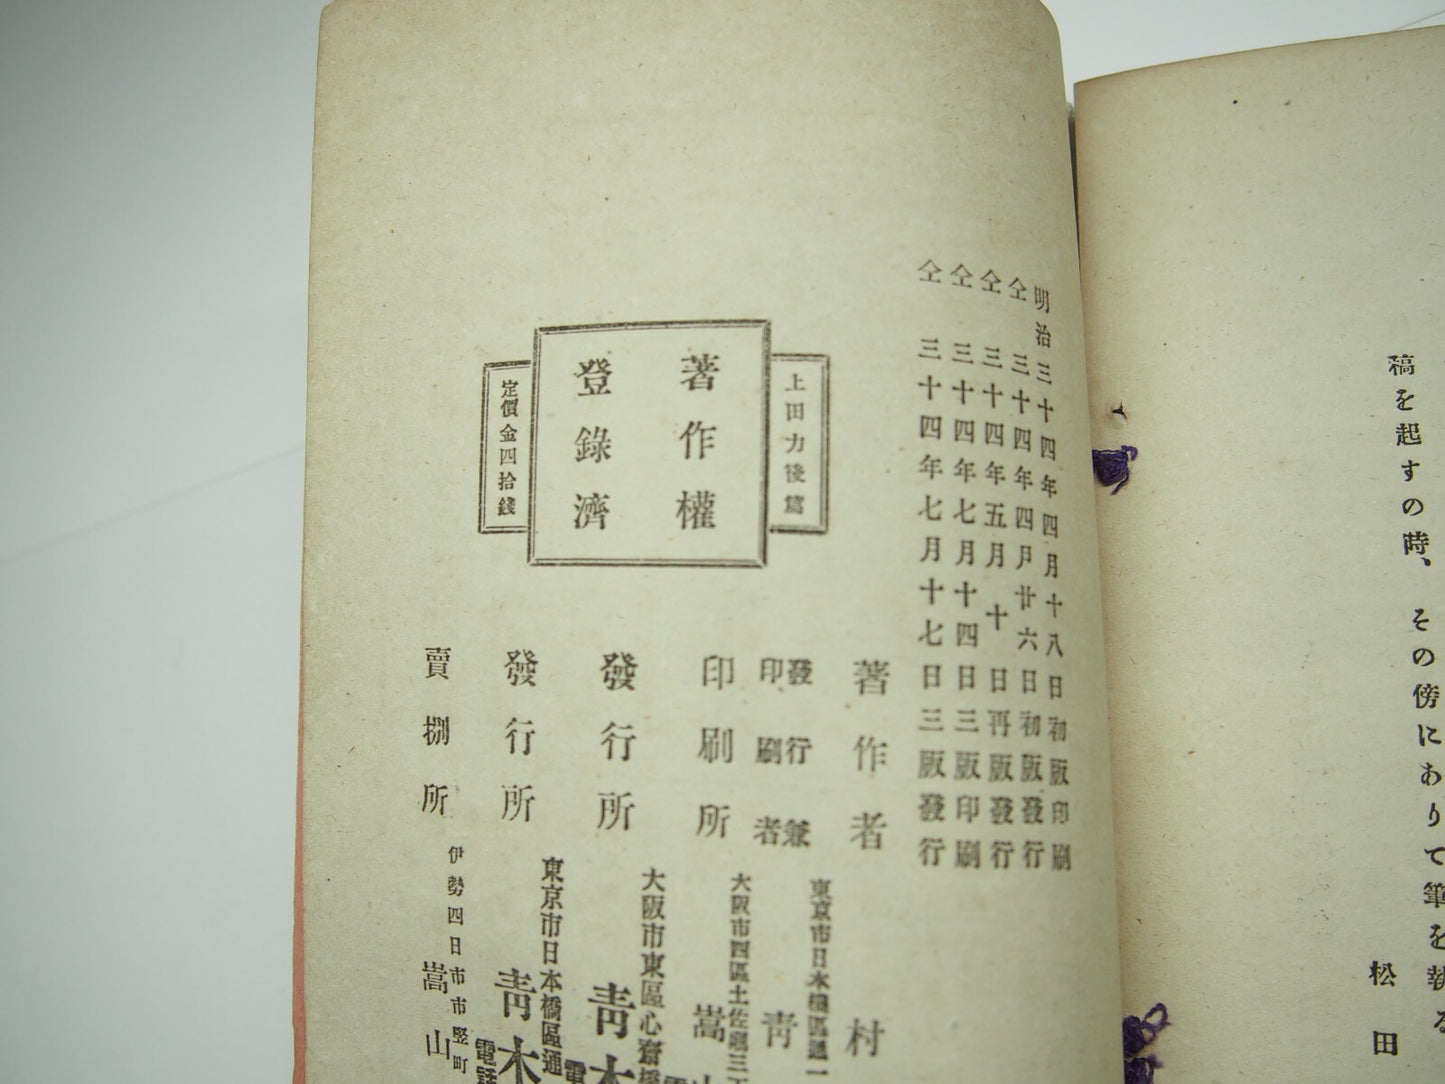 稿を起すの時、その傍にありて筆を執る
松田
明治三十四年四月十八日初版印刷
仝　三十四年四月廿六日初版發行
仝　三十四年五月　十　日再版發行
仝　三十四年七月十四日三版印刷
仝　三十四年七月十七日三版發行
上田力後篇
著作權
登錄濟
定價金四拾錢
著作者　村
發行兼
印刷者
東京市日本橋區通一
靑
印刷所
大阪市四區土佐堀三丁
嵩山
發行所
大阪市東區心齋橋
靑木
發行所
東京市日本橋區通
靑木
電話
賣捌所
伊勢四日市市竪町
嵩山